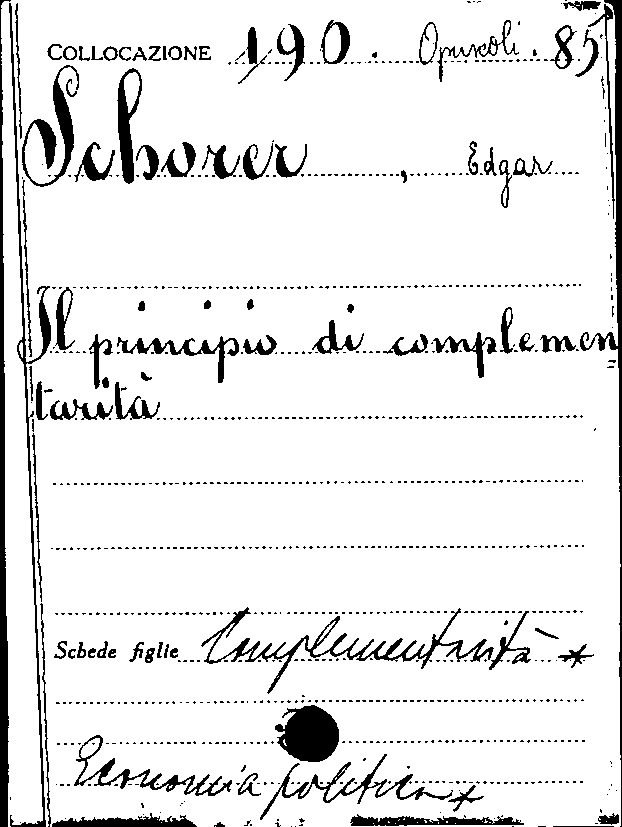 COLLOCAZIONE 190. Opuscoli. 85
Schorer, Edgar
Il principio di complemen=
tarità
Schede figlie Complementarità *
Economia politica *